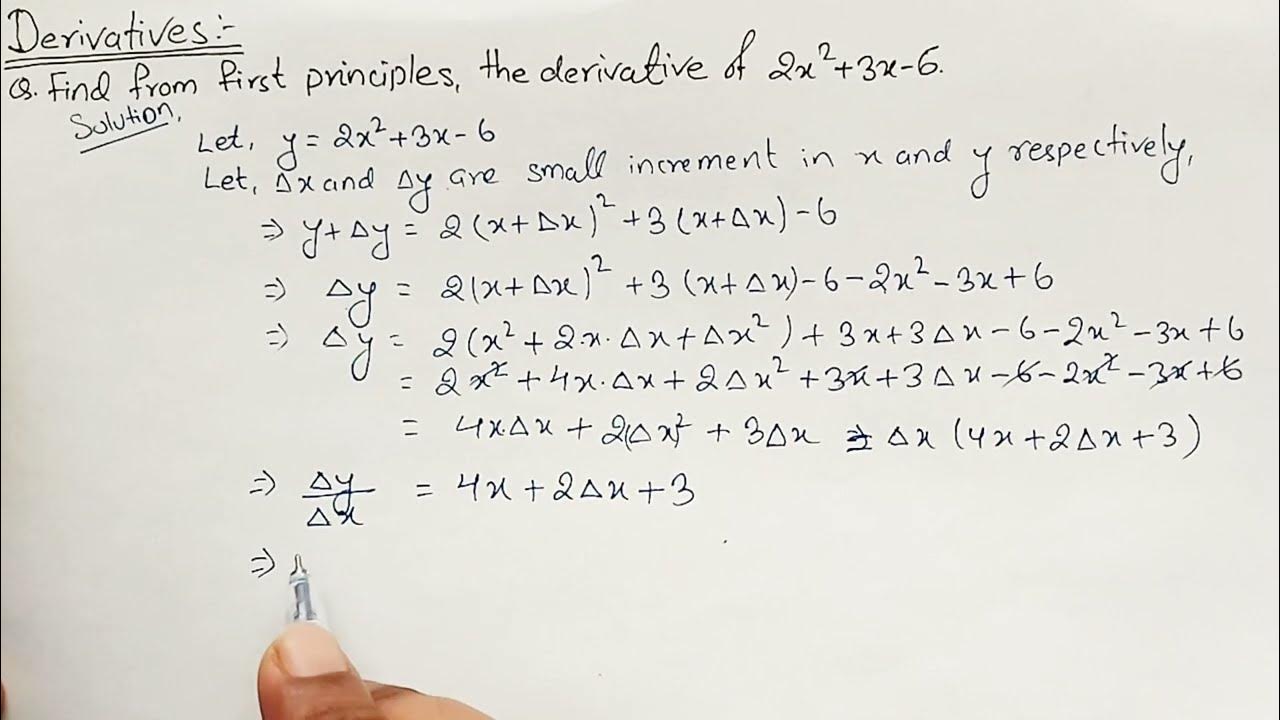 Derivatives:-
Q. Find from first principles, the derivative of 2x²+3x-6.
Solution,
Let, y = 2x²+3x-6
Let, Δx and Δy are small increment in x and y respectively,
⇒ y+Δy = 2(x+Δx)²+3(x+Δx)-6
⇒ Δy = 2(x+Δx)²+3(x+Δx)-6-2x²-3x+6
⇒ Δy = 2(x²+2·x·Δx+Δx²)+3x+3Δx-6-2x²-3x+6
= 2x²+4x·Δx+2Δx²+3x+3Δx-6-2x²-3x+6
= 4x·Δx+2(Δx)²+3Δx = Δx(4x+2Δx+3)
⇒ Δy/Δx = 4x+2Δx+3
⇒